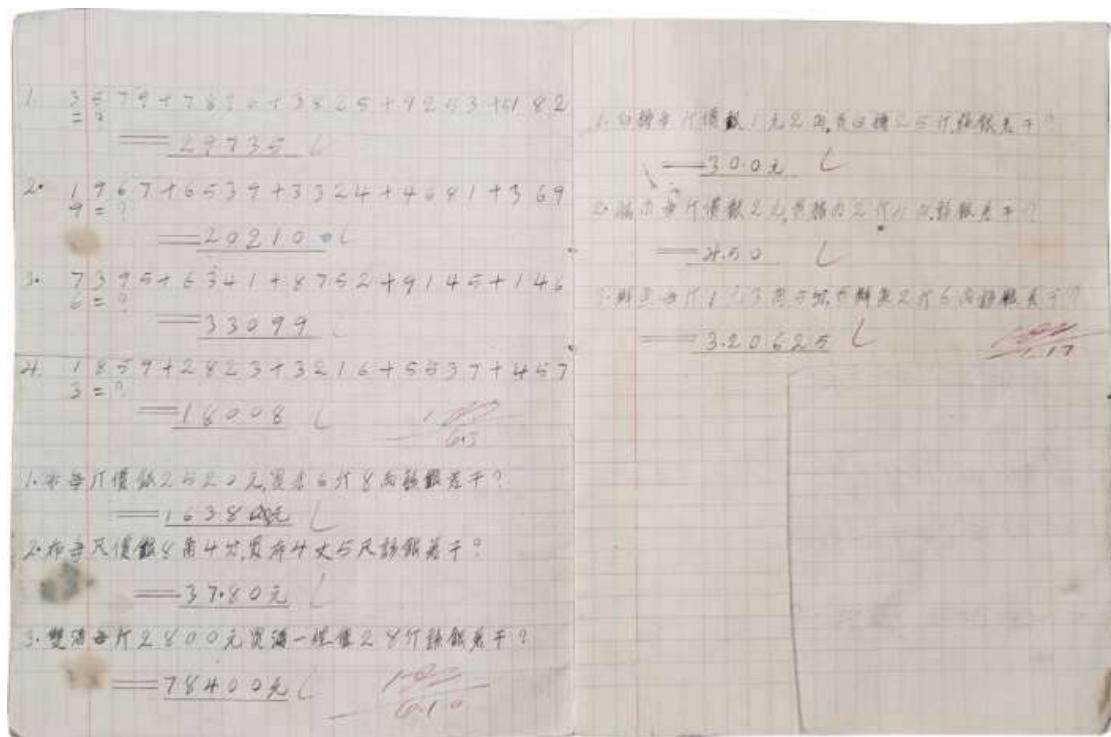 1. 3579+7820+3865+9253+5182
= ?
29735
2. 1967+6539+3324+4681+369
9 = ?
20210
3. 7395+6341+8752+9145+146
6 = ?
33099
4. 1859+2823+3216+5537+457
3 = ?
18008
100
6.3
1. 每斤價銀2520元,買 6斤8兩該銀若干?
16380元
2. 布每尺價銀8角4分,買布4丈5尺該銀若干?
37.80元
3. 雙 每斤2800元買 一 2 8斤該銀若干?
78400元
100
6.10
1. 白糖每斤價銀1元2角,買白糖25斤,該銀若干?
30.0元
2. 每斤價銀2元, 2斤 該銀若干?
4.50
3. 鮮魚每斤1元3角5分,買鮮魚2斤6兩該銀若干?
3.20625
100
6.17